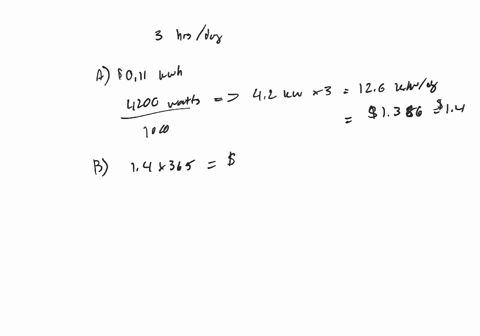 3 hrs/day
A) $0,11 kwh
4200 watts => 4.2 kw x 3 = 12.6 kw/dg
1000
= $1.386 = $1.4
B) 1.4 x 365 = $